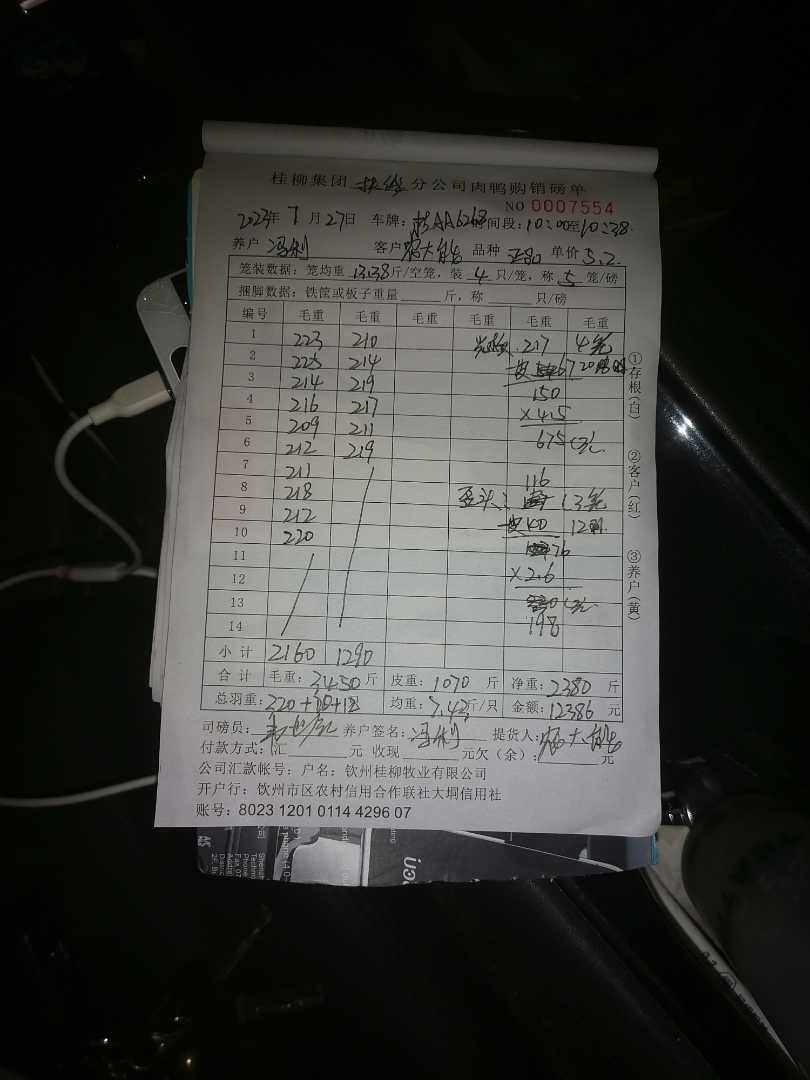 桂柳集团 分公司肉鸭购销磅单
NO 0007554
2023年 7月27日 车牌: AA6268 时间段:10:00至10:38
养户 冯利 客户 杨大能 品种 单价 5.2
笼装数据:笼均重 13.38斤/空笼,装 4 只/笼,称 5 笼/磅
捆脚数据:铁筐或板子重量____斤,称____只/磅
编号 毛重 毛重 毛重 毛重 毛重 毛重
1 223 210 217 4笼
2 225 214 67 20
3 214 219 150
4 216 217 ×4.5
5 209 211 675元
6 212 219
7 211 116
8 218 歪头: (3笼
9 212 皮40 12
10 220 76
11
12 ×2.6
13 元
14 198
小计 2160 1290
合计 毛重:3450斤 皮重:1070斤 净重:2380斤
总羽重: 均重:7.43斤/只 金额:12386元
司磅员: 养户签名:冯利 提货人:杨大能
付款方式:汇____元 收现____元欠(余):____元
公司汇款帐号:户名:钦州桂柳牧业有限公司
开户行:钦州市区农村信用合作联社大垌信用社
账号:8023 1201 0114 4296 07
①存根(白)
②客户(红)
③养户(黄)